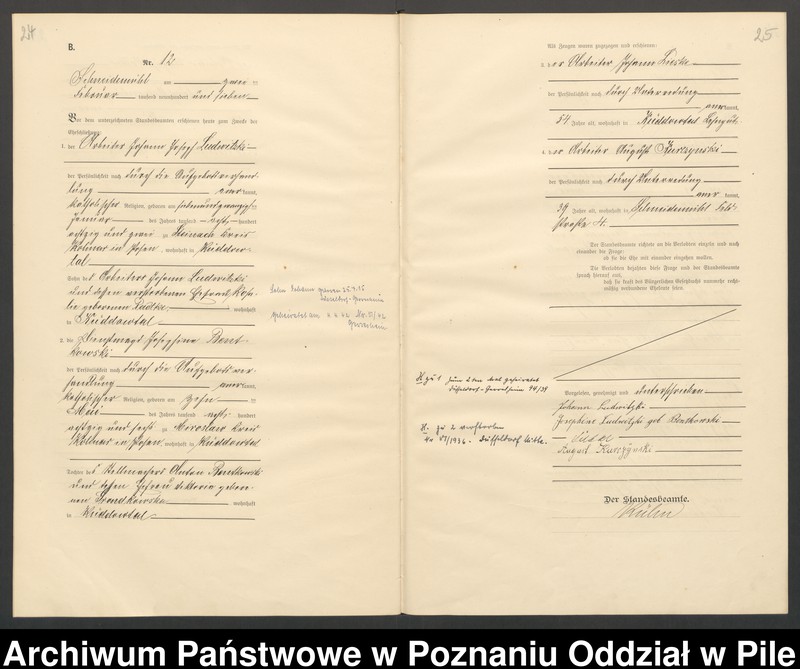 24
B.
Nr. 12
Schneidemühl am zwei ten
Februar tausend neunhundert und sieben
Vor dem unterzeichneten Standesbeamten erschienen heute zum Zwecke der
Eheschließung:
1. der Arbeiter Johann Joseph Ludwitzki
der Persönlichkeit nach durch die Aufgebotsverhand-
lung anerkannt,
katholischer Religion, geboren am siebenundzwanzigsten
Januar des Jahres tausend acht hundert
achtzig und zwei zu Steinach Kreis
Kolmar in Posen, wohnhaft in Küddow-
tal
Sohn des Arbeiters Johann Ludwitzki
und dessen verstorbenen Ehefrau Rosa-
lie geborenen Radtke wohnhaft
in Küddowtal
2. die Dienstmagd Josephine Bent-
kowski
der Persönlichkeit nach durch die Aufgebotsver-
handlung anerkannt,
katholischer Religion, geboren am zehn ten
Mai des Jahres tausend acht hundert
achtzig und sechs zu Miroslaw Kreis
Kolmar in Posen, wohnhaft in Küddowtal
Tochter des Stellmachers Anton Bentkowski
und dessen Ehefrau Viktoria gebore-
nen wohnhaft
in Küddowtal
Sohn Johann geboren
geheiratet am
Gerresheim
25
Als Zeugen waren zugezogen und erschienen:
3. der Arbeiter Johann
der Persönlichkeit nach durch Unterredung
anerkannt,
54 Jahre alt, wohnhaft in Küddowtal
4. der Arbeiter August Kurczynski
der Persönlichkeit nach durch Unterredung
anerkannt,
39 Jahre alt, wohnhaft in Schneidemühl Feld-
straße 4.
Der Standesbeamte richtete an die Verlobten einzeln und nach
einander die Frage:
ob sie die Ehe mit einander eingehen wollen.
Die Verlobten bejahten diese Frage und der Standesbeamte
sprach hierauf aus,
daß sie kraft des Bürgerlichen Gesetzbuchs nunmehr recht-
mäßig verbundene Eheleute seien.
H zu 1 zum 2ten mal geheiratet
Düsseldorf-Gerresheim 44/38
H. zu 2 verstorben
Nr 1936. Düsseldorf Mitte.
Vorgelesen, genehmigt und unterschrieben
Johann Ludwitzki
Josephine Ludwitzki geb Bentkowski
August Kurczynski
Der Standesbeamte.
Archiwum Państwowe w Poznaniu Oddział w Pile